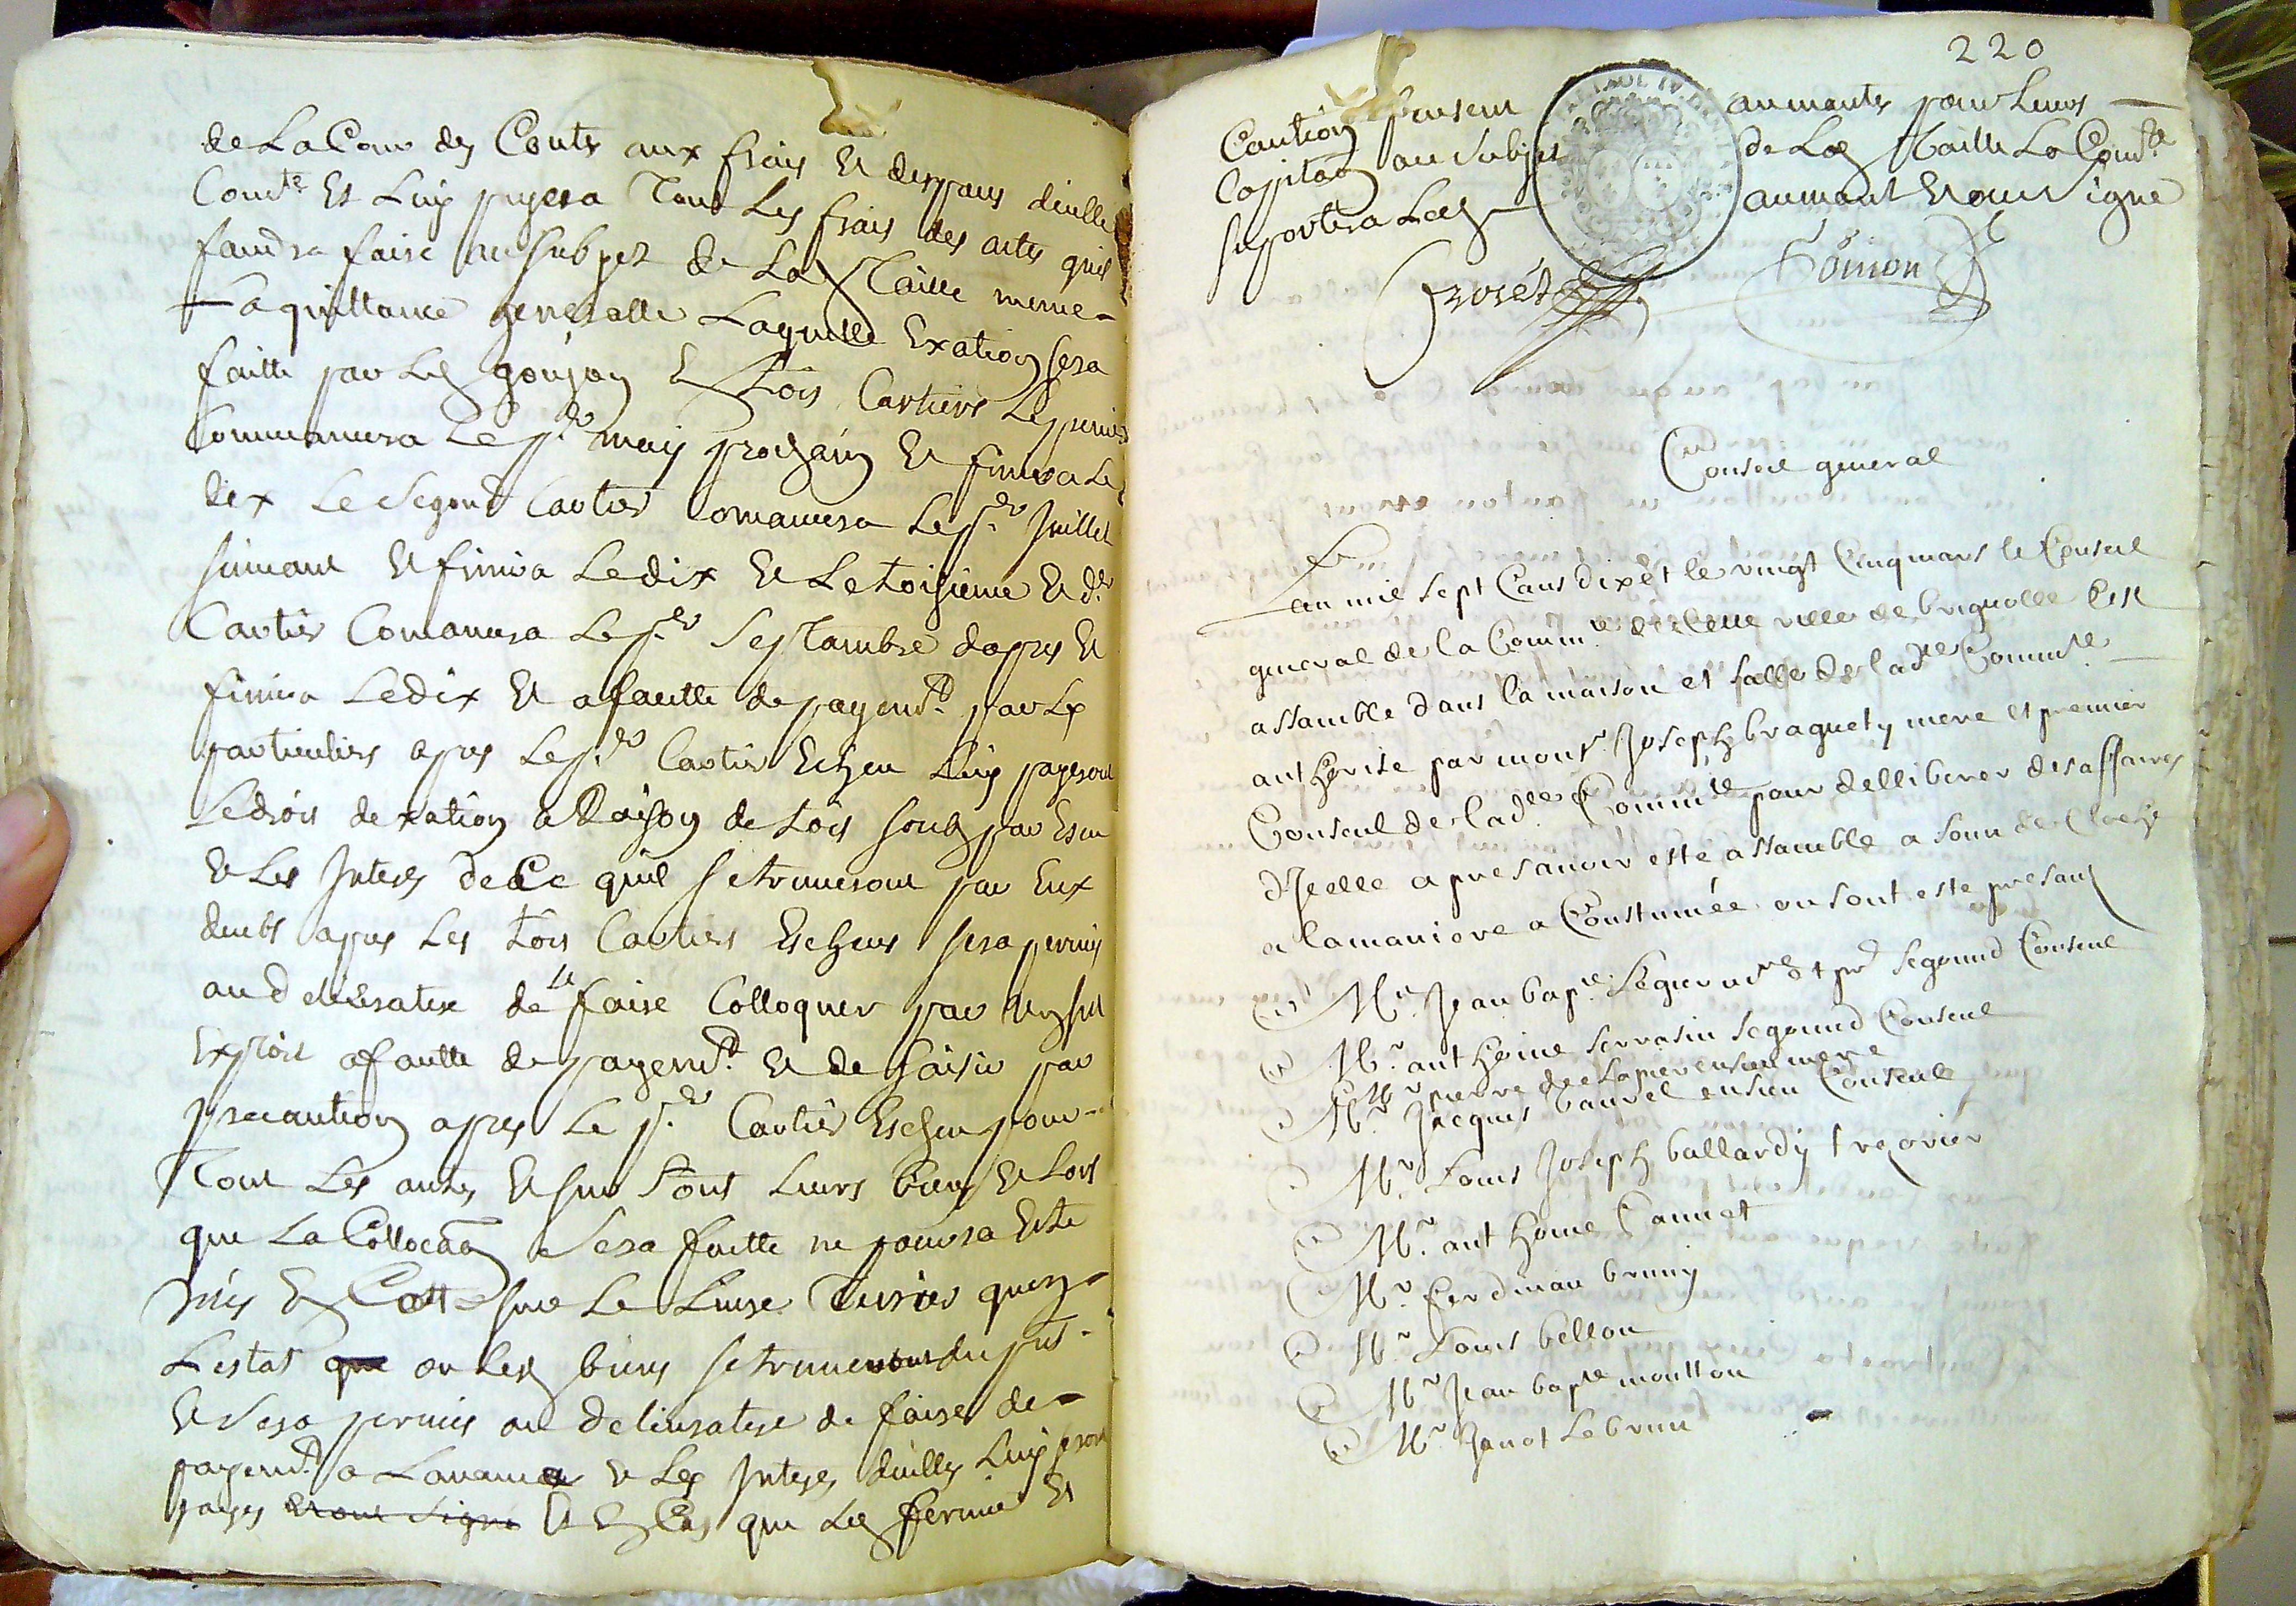 de La Cour des Conts aux frais Et despans dicelle
Com.te Et Luy payera Tous Les frais des actes quil
faudra faire au subget de Lad Taille meme-
La quittance generalle Laquelle Exation sera
faitte par Led goujon En Trois Cartiers Le premier
Commancera Le p.er may prochain Et finira Le
dix Le Segond Cartier Comancera Le p.er Juillet
suivant Et finira Le dix Et Le troisieme Et d.er
Cartier Comancera Le p.er Septambre dapres Et
finira Le dix Et a faitte de payem.t par Les
particuliers apres Le p.er Cartier Echeu Luy payeront
Le drois dexation a Raison de trois souls par Escu
Et Les Interes de Ce quil se truveront par Eux
deubs apres Les trois Cartiers Escheus sera permis
au deliberatere de se faire Colloquer par un sul
Exploit a fautte de payem.t Et de saisir par
precaution apres Le p.er Cartier Escheu pour-
Tous Les autres Et sur Tous Leurs biens Et Lors
que La Collocaon Sera faitte ne pourra Estre
mis En Cotte sur Le Livre Terrier quen-
Lestat que ou Lesd biens se truveront du pnt.
Et Sera permis au delivratere de faire de-
payem.t a Lavance Et Les Interes diceller Luy seront
payes Et ont Signe Et En Cas que Led fermie Et
220
Caution fusent aumantes pour Leurs
Capitaon au Subjet de Lad Taille La Com.te
suportera Lad aumant Et ont Signe
Conseil general
Lan mil sept Cans dix et le vingt Cinq mars le Conseil
general de la Comm.te de Cette ville de brignolle Est
assamble dans la maison et salle de lad.te Commte
auth orise par mons.r Joseph braguety mere et premier
Conseul de lad.te Comm.te pour delliberer des affaires
dIcelle apres avoir esté assamble a Soun de Cloche
a la maniere a Coustumée ou sont este presans
M.e Jean bap.te Segond Conseul
M.r ant hoine serrasin segound Conseul
M.r pierre de Lapier ensien mere
M.r Jacques baurel ensien Conseul
M.r Louis Joseph ballardy trezorier
M.r ant hoine Cannet
M.r ferdinan bruny
M.r Louis bellon
M.r Jean bap.te moutton
M.r Janot Lebrun